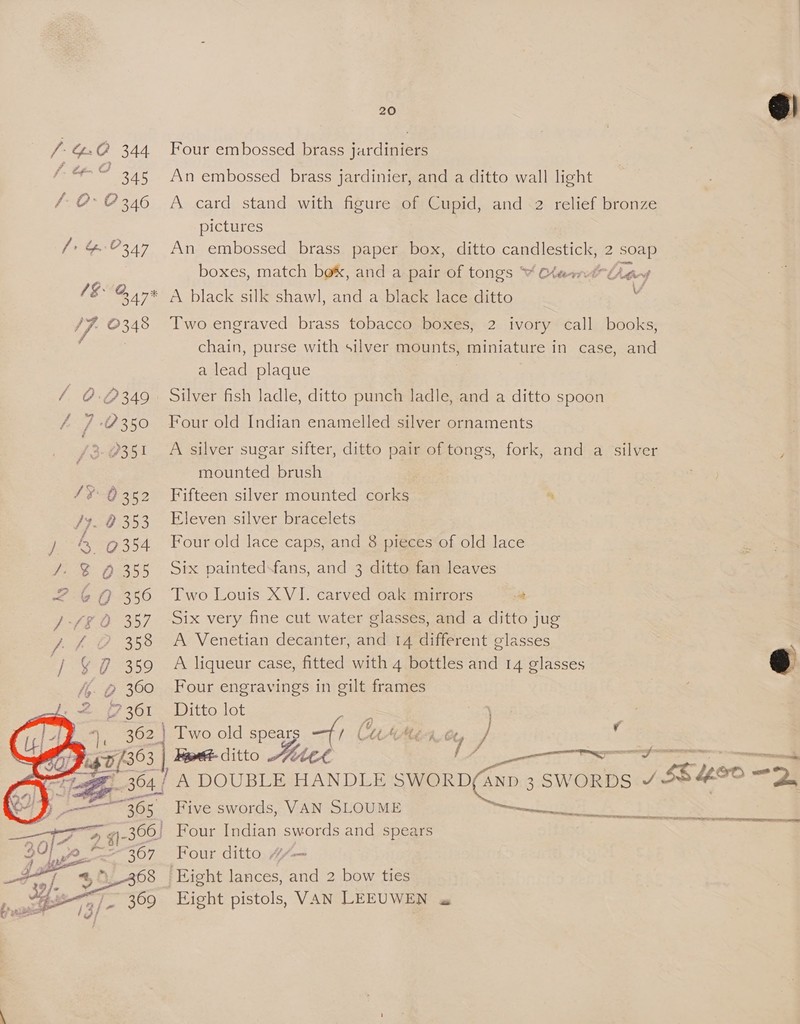 20
/- 4. 0 344 Four embossed brass jardiniers
345 An embossed brass jardinier, and a ditto wall light
/- 0- 0 346 A card stand with figure of Cupid, and 2 relief bronze
pictures
347 An embossed brass paper box, ditto candlestick, 2 soap
boxes, match box, and a pair of tongs
347* A black silk shawl, and a black lace ditto
17. 0 348 Two engraved brass tobacco boxes, 2 ivory call books,
chain, purse with silver mounts, miniature in case, and
a lead plaque
/ 0. 0 349 Silver fish ladle, ditto punch ladle, and a ditto spoon
/. 7. 0 350 Four old Indian enamelled silver ornaments
351 A silver sugar sifter, ditto pair of tongs, fork, and a silver
mounted brush
18. 0 352 Fifteen silver mounted corks
353 Eleven silver bracelets
354 Four old lace caps, and 8 pieces of old lace
/. 8 0 355 Six painted fans, and 3 ditto fan leaves
2 6 0 356 Two Louis XVI. carved oak mirrors
357 Six very fine cut water glasses, and a ditto jug
358 A Venetian decanter, and 14 different glasses
359 A liqueur case, fitted with 4 bottles and 14 glasses
360 Four engravings in gilt frames
361 Ditto lot
362 Two old spears
363 ditto
364 A DOUBLE HANDLE SWORD AND 3 SWORDS
365 Five swords, VAN SLOUME
366 Four Indian swords and spears
367 Four ditto
368 Eight lances, and 2 bow ties
369 Eight pistols, VAN LEEUWEN